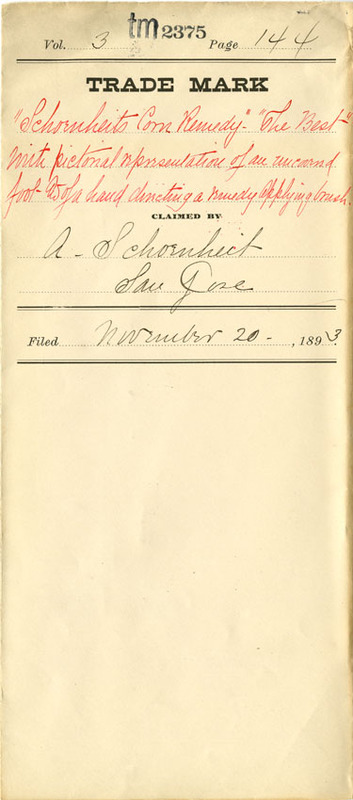 tm 2375
Vol. 3 Page 144
TRADE MARK
"Schoenheits Corn Remedy". "The Best"
with pictorial representation of an uncovered
foot & of a hand directing a remedy applying brush.
CLAIMED BY
A - Schoenheit
San Jose
Filed November 20 - , 1893.